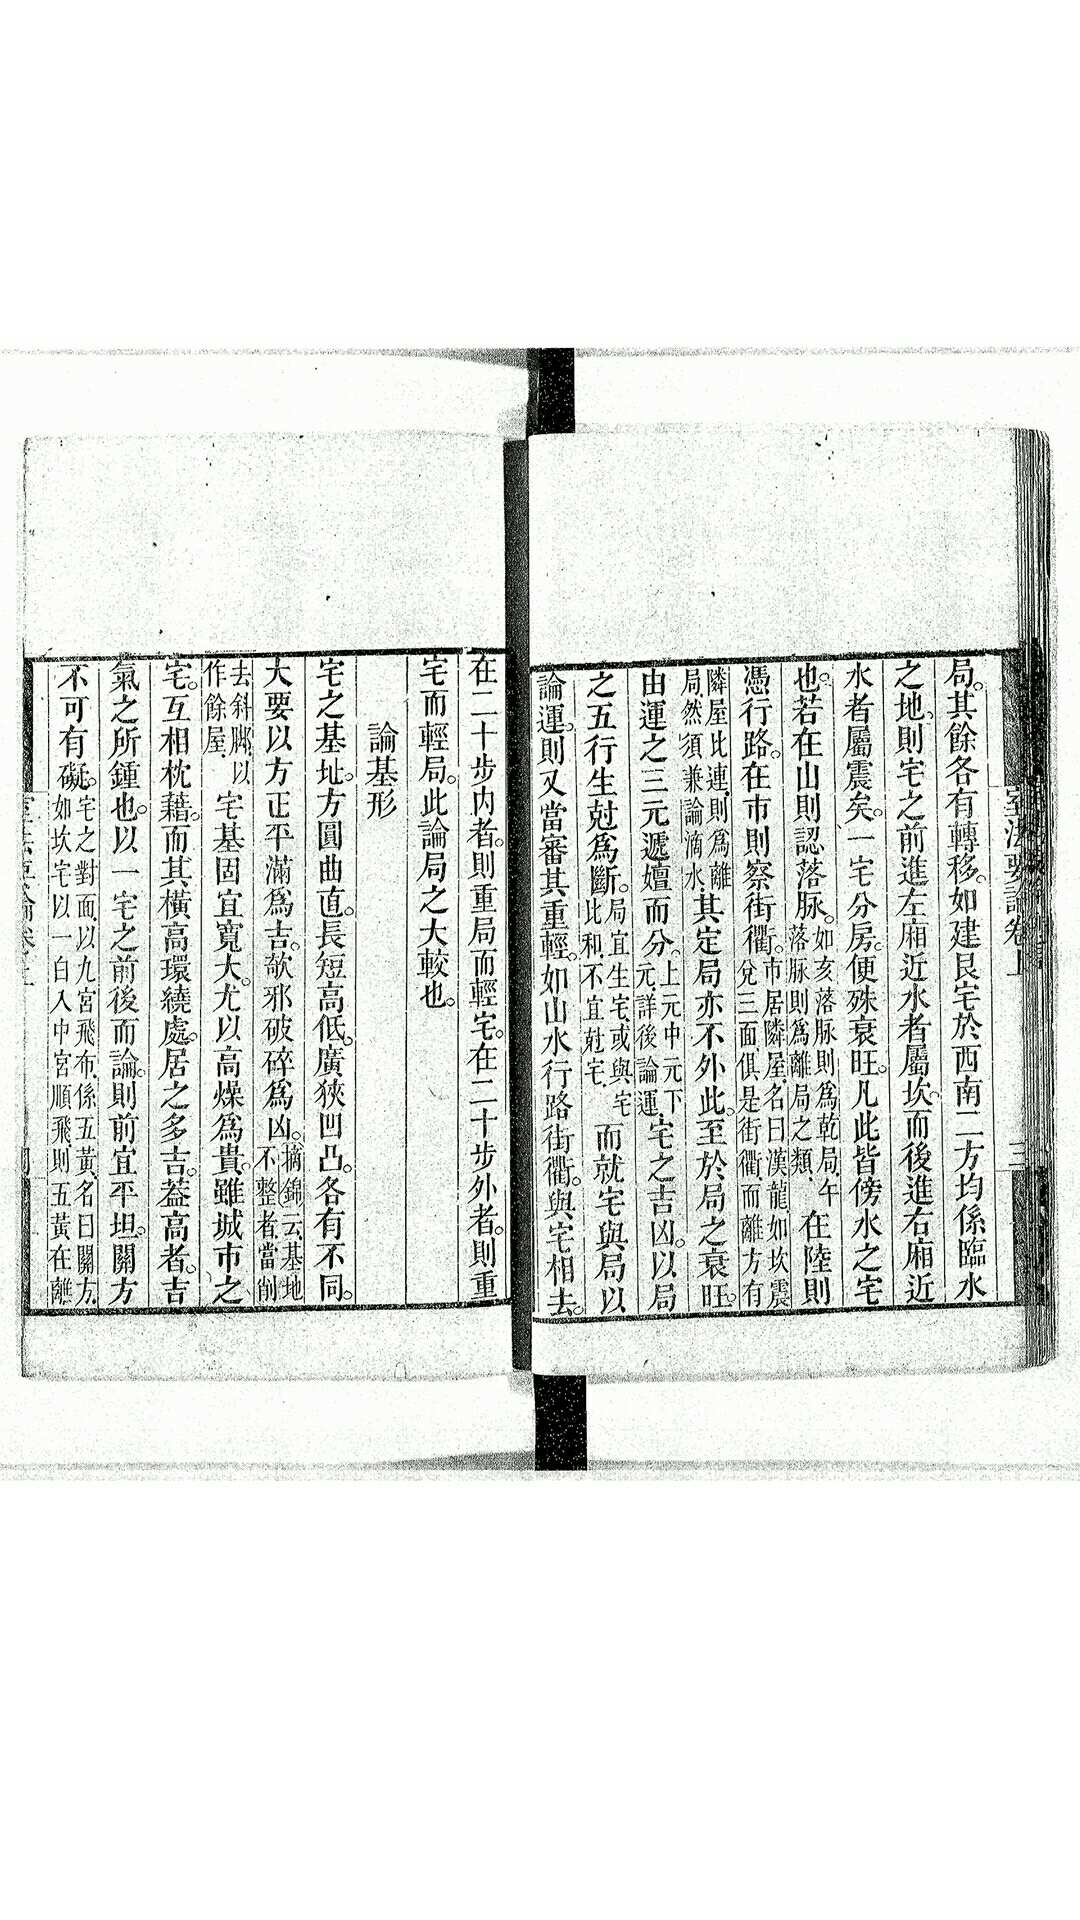 局。其餘各有轉移。如建艮宅於西南二方均係臨水
之地。則宅之前進左廂近水者屬坎。而後進右廂近
水者屬震矣。一宅分房。便殊衰旺。凡此皆傍水之宅
也。若在山則認落脉。如亥落脉則爲乾局。午
落脉則爲離局之類。在陸則
憑行路。在市則察街衢。市居隣屋。名曰漢龍。如坎震
兌三面。俱是街衢。而離方有
隣屋比連。則爲離
局。然須兼論滴水。其定局亦不外此。至於局之衰旺。
由運之三元遞嬗而分。上元中元下
元。詳後論運。宅之吉凶。以局
之五行生尅爲斷。局宜生宅。或與宅
比和。不宜尅宅。而就宅與局以
論運。則又當審其重輕。如山水行路街衢。與宅相去。
在二十步內者。則重局而輕宅。在二十步外者。則重
宅而輕局。此論局之大較也。
論基形
宅之基址。方圓曲直。長短高低。廣狹凹凸。各有不同。
大要以方正平滿爲吉。欹邪破碎爲凶。摘錦云。基地
不整者。當削
去斜脚。以
作餘屋。宅基固宜寬大。尤以高燥爲貴。雖城市之
宅。互相枕藉。而其橫高環繞處。居之多吉。葢高者。吉
氣之所鍾也。以一宅之前後而論。則前宜平坦。關方
不可有礙。宅之對面。以九宮飛布。係五黃。名曰關方。
如坎宅以一白入中宮順飛。則五黃在離